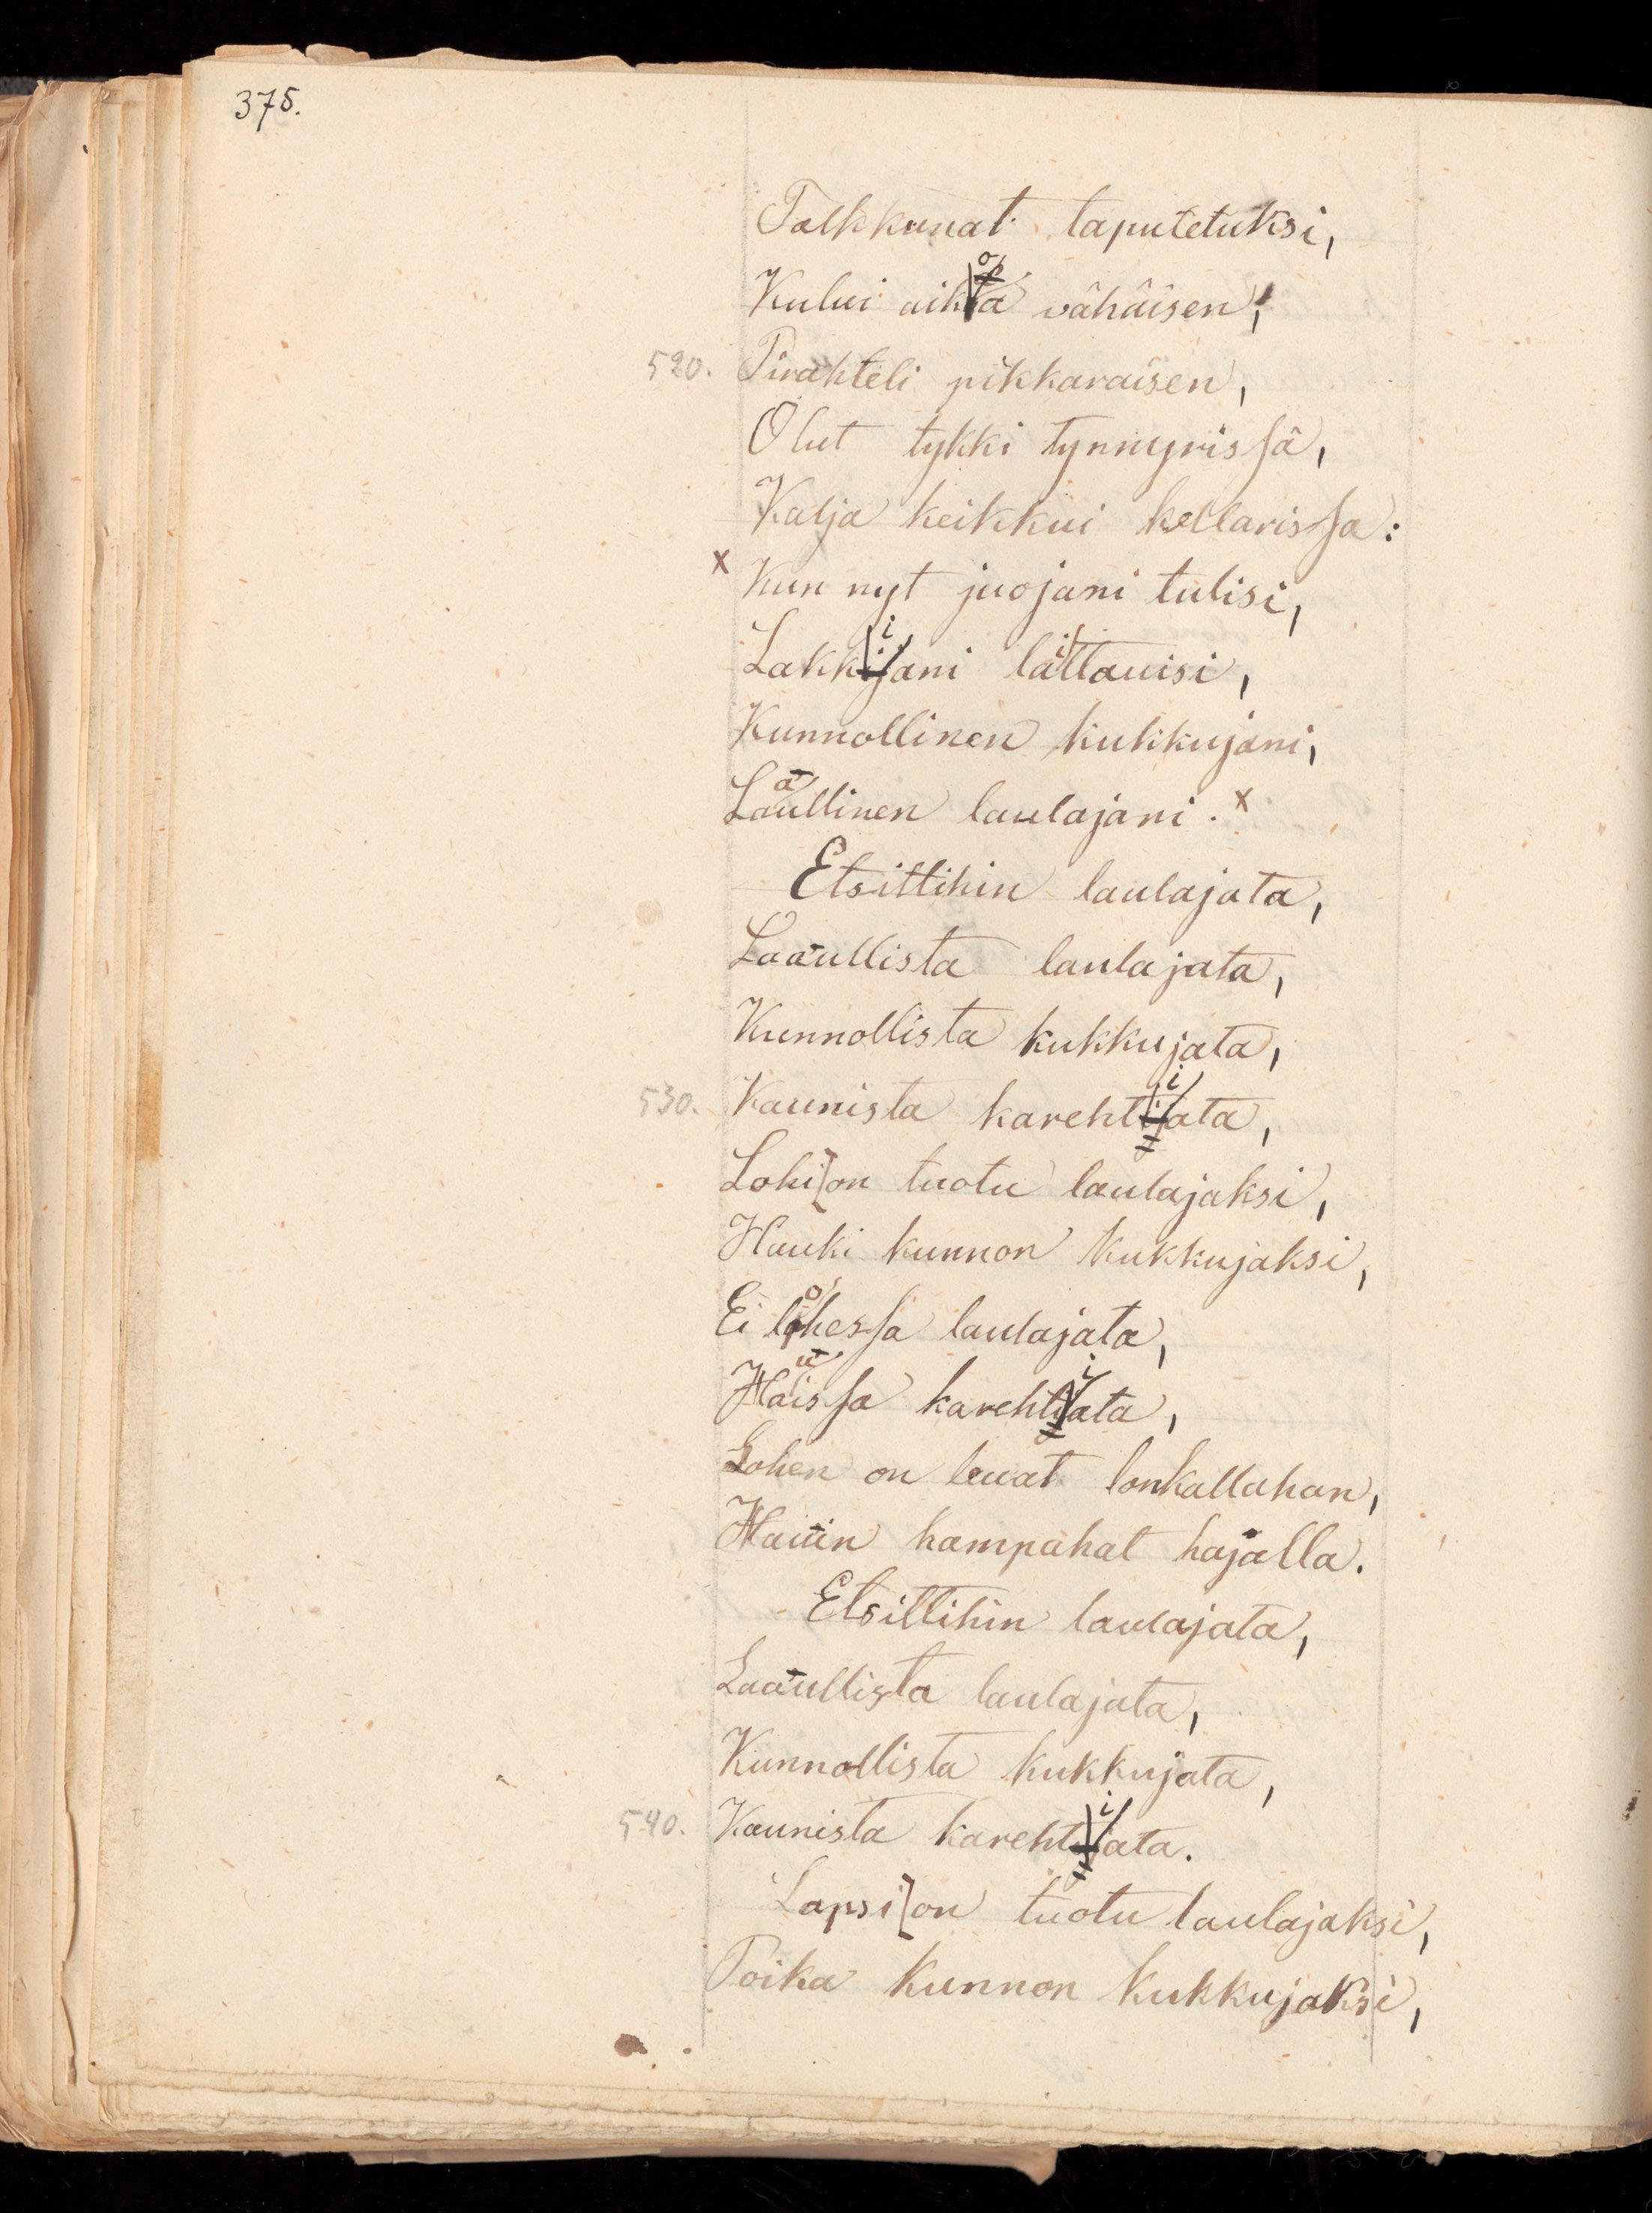 375.
Talkkunat taputetuksi,
Kului aikoa vähäisen,
520. Pirahteli pikkaraisen,
Olut tykki tynnyrissä,
Kalja keikkui kellarissa:
x Kun nyt juojani tulisi,
Lakkijani laittauisi,
Kunnollinen kukkujani,
Laaullinen laulajani. x
Etsittihin laulajata,
Laaullista laulajata,
Kunnollista kukkujata,
530. Kaunista karehtijata,
Lohi on tuotu laulajaksi,
Hauki kunnon kukkujaksi,
Ei lohessa laulajata,
Hauissa karehtijata,
Lohen on leuat lonkallahan,
Hauin hampahat hajalla.
Etsittihin laulajata,
Laaullista laulajata,
Kunnollista kukkujata,
540. Kaunista karehtijata.
Lapsi on tuotu laulajaksi,
Poika kunnon kukkujaksi,